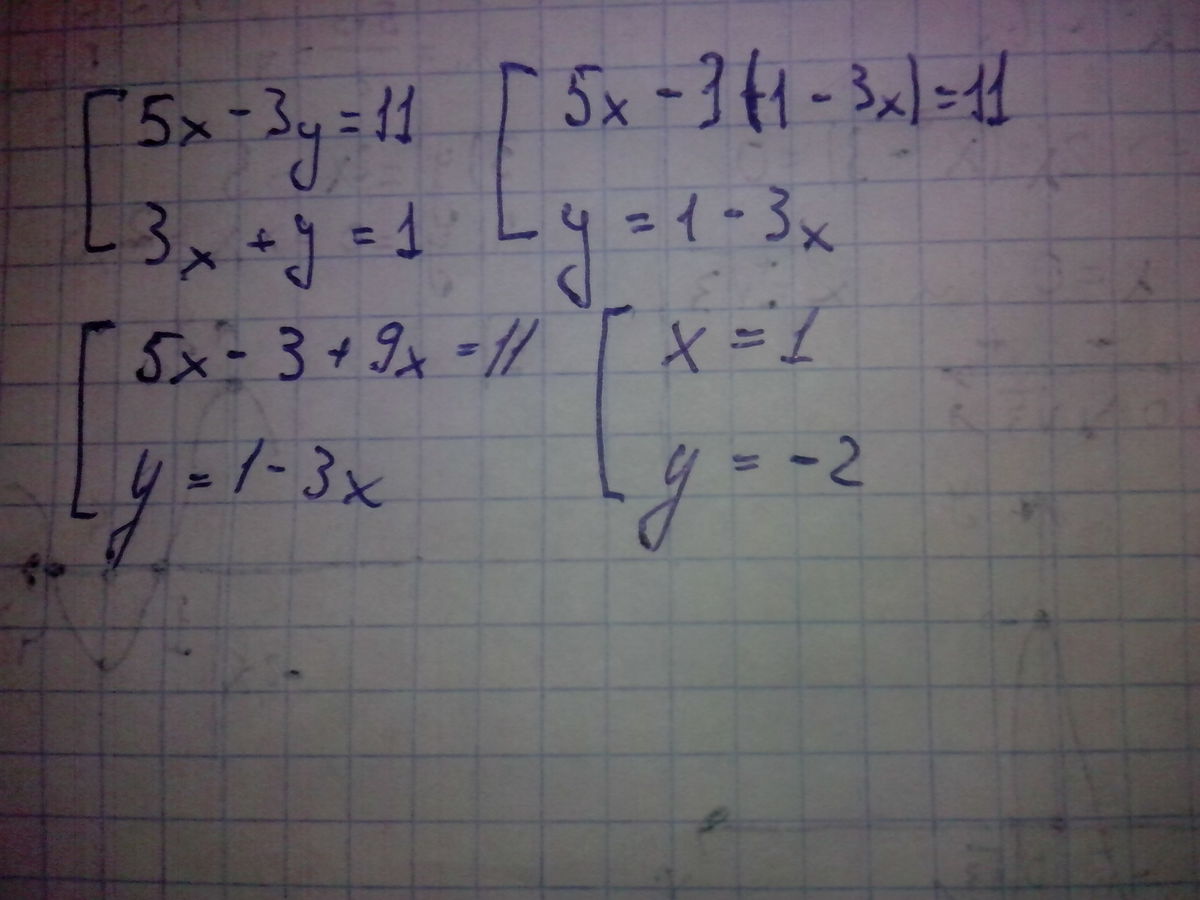 5x - 3y = 11
3x + y = 1
5x - 3(1 - 3x) = 11
y = 1 - 3x
5x - 3 + 9x = 11
y = 1 - 3x
x = 1
y = -2